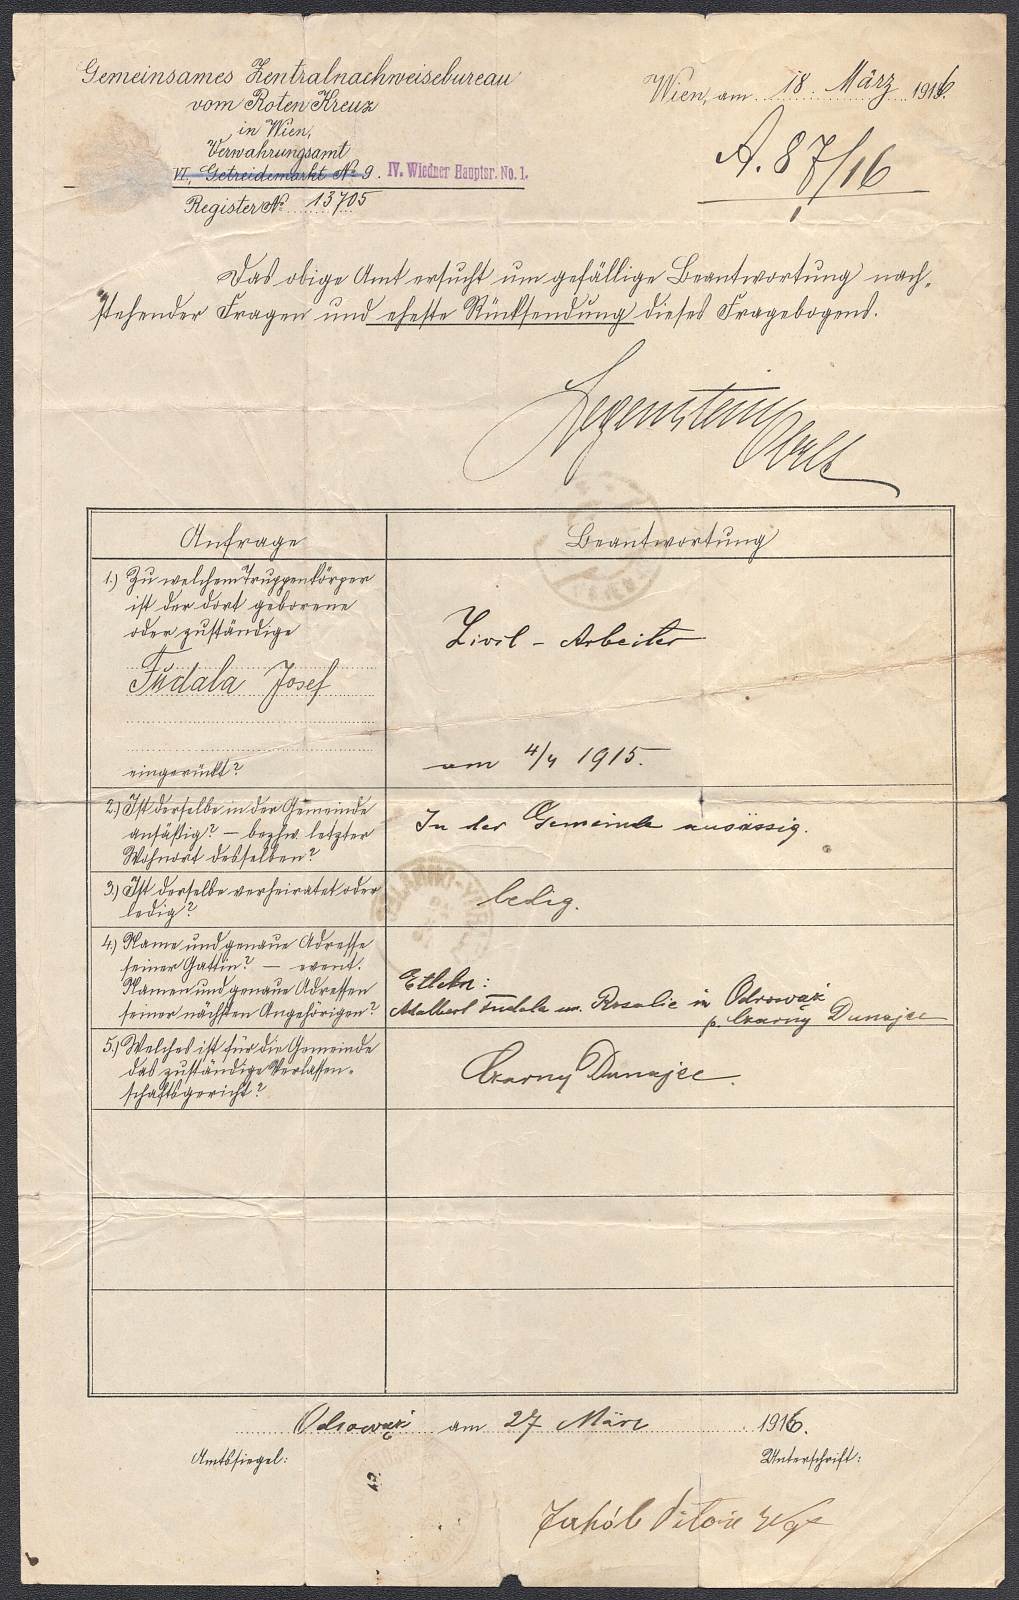 Gemeinsames Zentralnachweisebureau
vom Roten Kreuz
in Wien,
Verwahrungsamt
VI., Getreidemarkt № 9. IV. Wiedner Hauptsr. No. 1.
Register № 13705
Wien, am 18. März 1916.
A. 87/16
Das obige Amt ersucht um gefällige Beantwortung nach-
stehender Fragen und eheste Rücksendung dieses Fragebogens.
Legenstein
Oblt
Anfrage
Beantwortung
1.) Zu welchem Truppenkörper
ist der dort geborene
oder zuständige
Tudala Josef
eingerückt?
Zivil-Arbeiter
am 4/4 1915.
2.) Ist derselbe in der Gemeinde
ansäßig? — bezhw. letzter
Wohnort desselben?
In der Gemeinde ansässig.
3.) Ist derselbe verheiratet oder
ledig?
ledig.
4.) Name und genaue Adresse
seiner Gattin? — event.
Namen und genaue Adressen
seiner nächsten Angehörigen?
Eltern:
Adalbert Tudala un. Rosalie in Odrowąż
p. Czarny Dunajec
5.) Welches ist für die Gemeinde
das zuständige Verlassen-
schaftsgericht?
Czarny Dunajec.
Odrowąż am 27 März 1916.
Amtssiegel:
Unterschrift:
Jakób